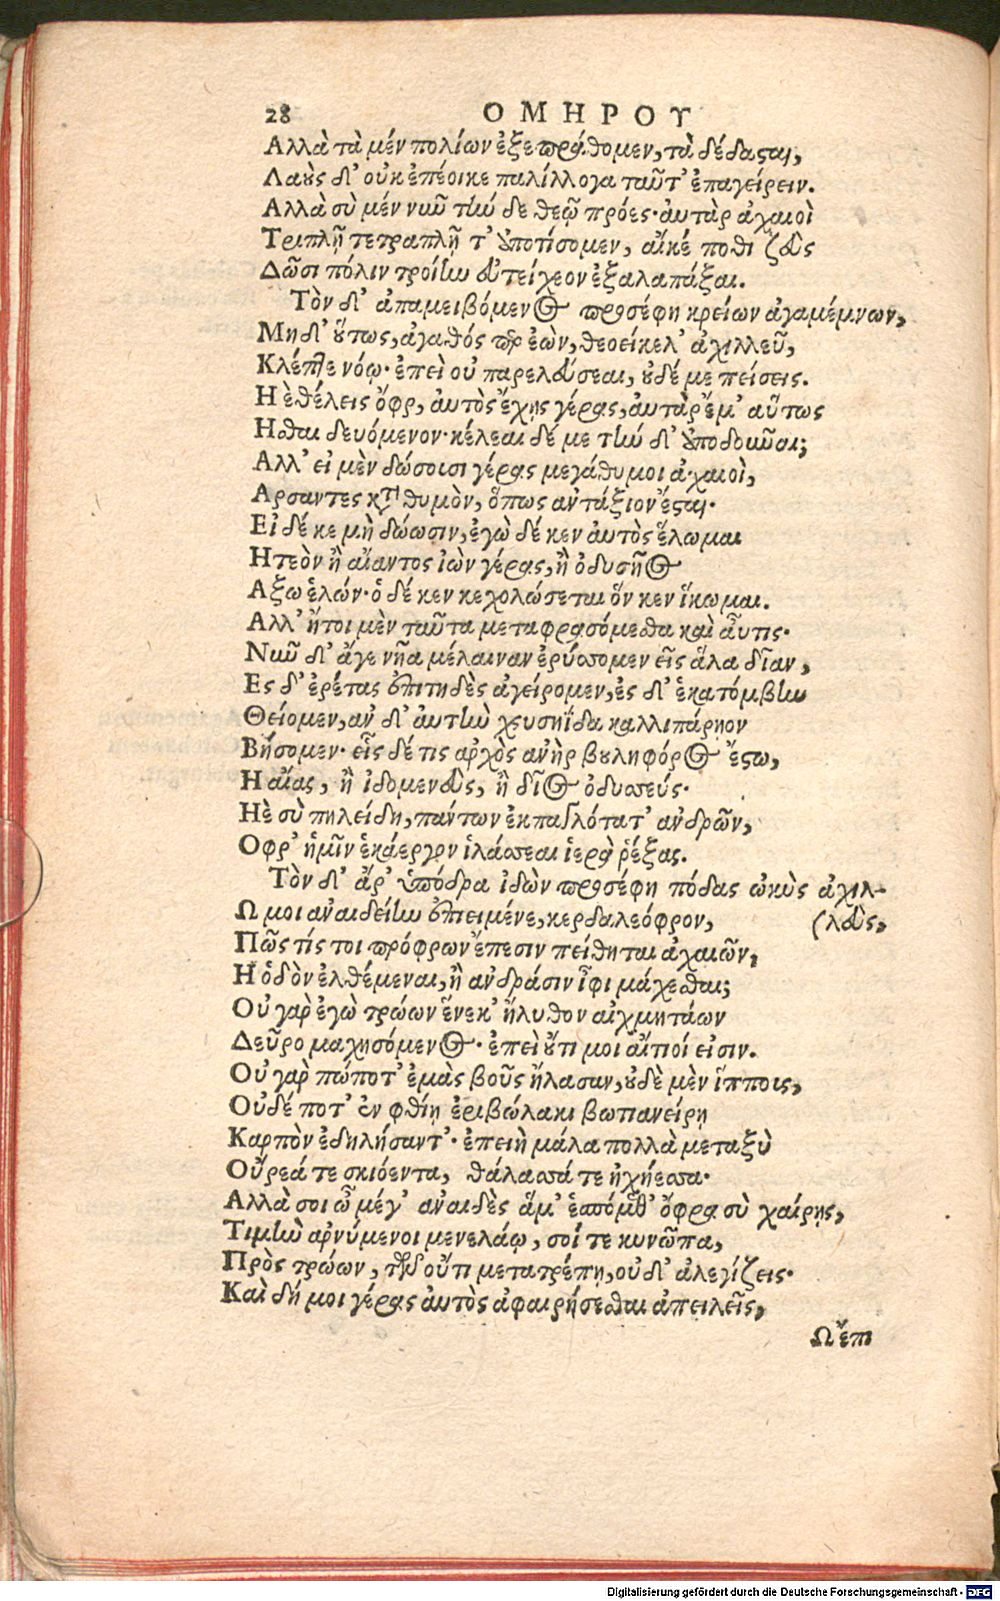 28 ΟΜΗΡΟΥ
Αλλὰ τὰ μέν πολίων ἐξεπράθομεν, τὰ δέδασαι,
Λαοὺς δ' οὐκ ἐπέοικε παλίλλογα ταῦτ' ἐπαγείρειν.
Αλλὰ σὺ μέν νυῦ τήν δε θεῷ πρόες· ἀυτὰρ ἀχαιοὶ
Τριπλῇ τετραπλῇ τ' ἀποτίσομεν, αἴκέ ποθι ζεὺς
Δῶσι πόλιν τροίην ἐυτείχεον ἐξαλαπάξαι.
Τὸν δ' ἀπαμειβόμενος προσέφη κρείων ἀγαμέμνων,
Μὴ δ' οὕτως, ἀγαθός περ ἐὼν, θεοείκελ' ἀχιλλεῦ,
Κλέπτε νόῳ· ἐπεὶ οὐ παρελεύσεαι, οὐδέ με πείσεις.
Η ἐθέλεις ὄφρ, ἀυτὸς ἔχῃς γέρας, ἀυτὰρ ἔμ' αὔτως
Ησθαι δευόμενον· κέλεαι δέ με τὴν δ' ἀποδοῦναι;
Αλλ' εἰ μὲν δώσουσι γέρας μεγάθυμοι ἀχαιοὶ,
Αρσαντες κατὰ θυμὸν, ὅπως ἀντάξιον ἔσται·
Εἰ δέ κε μὴ δώωσιν, ἐγὼ δέ κεν ἀυτὸς ἕλωμαι
Η τεὸν ἢ αἴαντος ἰὼν γέρας, ἢ ὀδυσῆος
Αξω ἑλών· ὁ δέ κεν κεχολώσεται ὅν κεν ἵκωμαι.
Αλλ' ἤτοι μὲν ταῦτα μεταφρασόμεσθα καὶ αὖτις·
Νῦν δ' ἄγε νῆα μέλαιναν ἐρύσσομεν εἰς ἅλα δῖαν,
Ες δ' ἐρέτας ἐπιτηδὲς ἀγείρομεν, ἐς δ' ἑκατόμβην
Θείομεν, ἀν δ' ἀυτὴν χρυσηΐδα καλλιπάρηον
Βήσομεν· εἷς δέ τις ἀρχὸς ἀνὴρ βουληφόρος ἔστω,
Η αἴας, ἢ ἰδομενεὺς, ἢ δῖος ὀδυσσεύς·
Ηὲ σὺ πηλείδη, πάντων ἐκπαγλότατ' ἀνδρῶν,
Οφρ' ἡμῖν ἑκάεργον ἱλάσσεαι ἱερὰ ῥέξας.
Τὸν δ' ἄρ' ὑπόδρα ἰδὼν προσέφη πόδας ὠκὺς ἀχιλ-
Ω μοι ἀναιδείην ἐπιειμένε, κερδαλεόφρον, (λεὺς,
Πῶς τίς τοι πρόφρων ἔπεσιν πείθηται ἀχαιῶν,
Η ὁδὸν ἐλθέμεναι, ἢ ἀνδράσιν ἶφι μάχεσθαι;
Οὐ γὰρ ἐγὼ τρώων ἕνεκ' ἤλυθον αἰχμητάων
Δεῦρο μαχησόμενος· ἐπεὶ οὔτι μοι αἴτιοί εἰσιν.
Οὐ γὰρ πώποτ' ἐμὰς βοῦς ἤλασαν, οὐδὲ μὲν ἵππους,
Οὐδέ ποτ' ἐν φθίῃ ἐριβώλακι βωτιανείρῃ
Καρπὸν ἐδηλήσαντ'· ἐπειὴ μάλα πολλὰ μεταξὺ
Οὔρεά τε σκιόεντα, θάλασσά τε ἠχήεσσα·
Αλλὰ σοι ὦ μέγ' ἀναιδὲς ἅμ' ἑσπόμεθ' ὄφρα σὺ χαίρῃς,
Τιμὴν ἀρνύμενοι μενελάῳ, σοί τε κυνῶπα,
Πρὸς τρώων, τῶν οὔτι μετατρέπῃ, οὐδ' ἀλεγίζεις·
Καὶ δή μοι γέρας ἀυτὸς ἀφαιρήσεσθαι ἀπειλεῖς,
Ω ἔπι
Digitalisierung gefördert durch die Deutsche Forschungsgemeinschaft - DFG